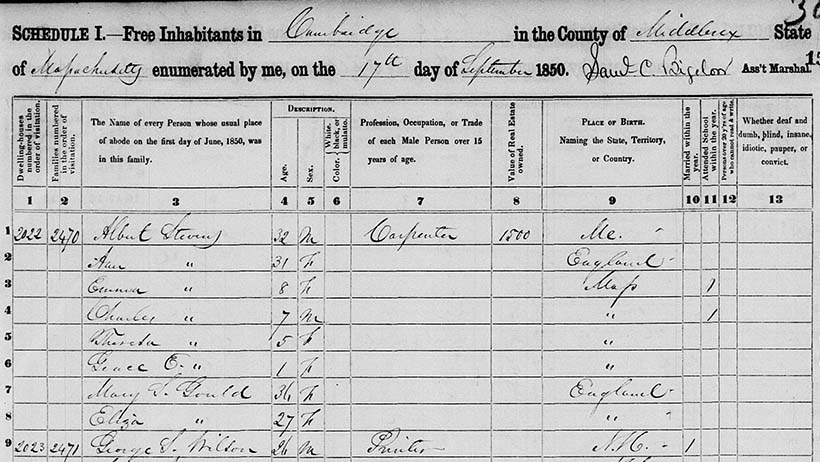 SCHEDULE I.—Free Inhabitants in Cambridge in the County of Middlesex State
of Massachusetts enumerated by me, on the 17th day of September 1850. Saml C. Bigelow Ass't Marshal.
Dwelling-houses numbered in the order of visitation.
Families numbered in the order of visitation.
The Name of every Person whose usual place of abode on the first day of June, 1850, was in this family.
DESCRIPTION.
Age.
Sex.
Color. White, black, or mulatto.
Profession, Occupation, or Trade of each Male Person over 15 years of age.
Value of Real Estate owned.
PLACE OF BIRTH. Naming the State, Territory, or Country.
Married within the year.
Attended School within the year.
Persons over 20 y'rs of age who cannot read & write.
Whether deaf and dumb, blind, insane, idiotic, pauper, or convict.
1 2 3 4 5 6 7 8 9 10 11 12 13
1 2022 2470 Albert Stevens 32 M Carpenter 1500 Me.
2 Ann " 31 F England
3 Emma " 8 F Mass 1
4 Charles " 7 M " 1
5 Theresa " 5 F "
6 Grace E. " 1 F "
7 Mary S. Gould 36 F England
8 Eliza " 27 F "
9 2023 2471 George S. Wilson 26 M Printer N.H. 1